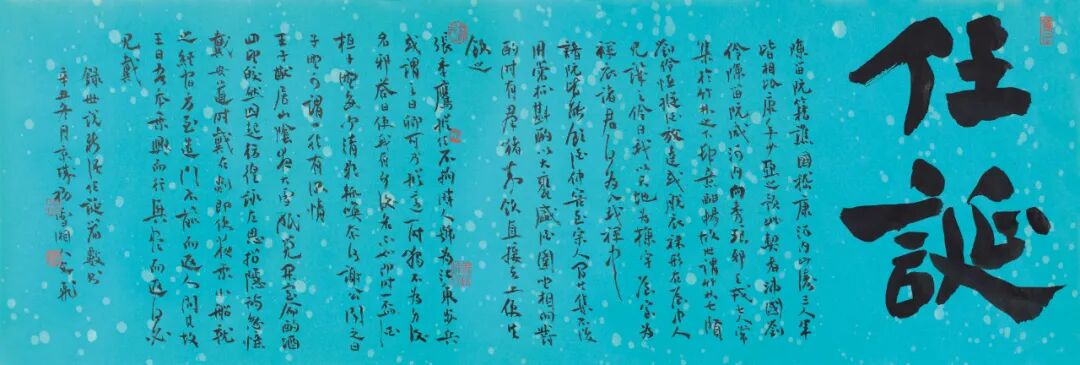 任誕
陳留阮籍譙國嵇康河內山濤三人年
皆相比康年少亞之預此契者沛國劉
伶陳留阮咸河內向秀琅邪王戎七人常
集於竹林之下肆意酣暢故世謂竹林七賢
劉伶恆縱酒放達或脫衣裸形在屋中人
見譏之伶曰我以天地為棟宇屋室為
褌衣諸君何為入我褌中
諸阮皆能飲酒仲容至宗人間共集不復
用常杯斟酌以大甕盛酒圍坐相向大
酌時有群豬來飲直接去上便共
飲之
張季鷹縱任不拘時人號為江東步兵
或謂之曰卿可乃縱適一時獨不為身後
名邪答曰使我有身後名不如即時一杯酒
桓子野每聞清歌輒喚奈何謝公聞之曰
子野可謂一往有深情
王子猷居山陰夜大雪眠覺開室命酌酒
四望皎然因起彷徨詠左思招隱詩忽憶
戴安道時戴在剡即便夜乘小船就
之經宿方至造門不前而返人問其故
王曰吾本乘興而行興盡而返何必
見戴
錄世說新語任誕篇數則
辛丑年月